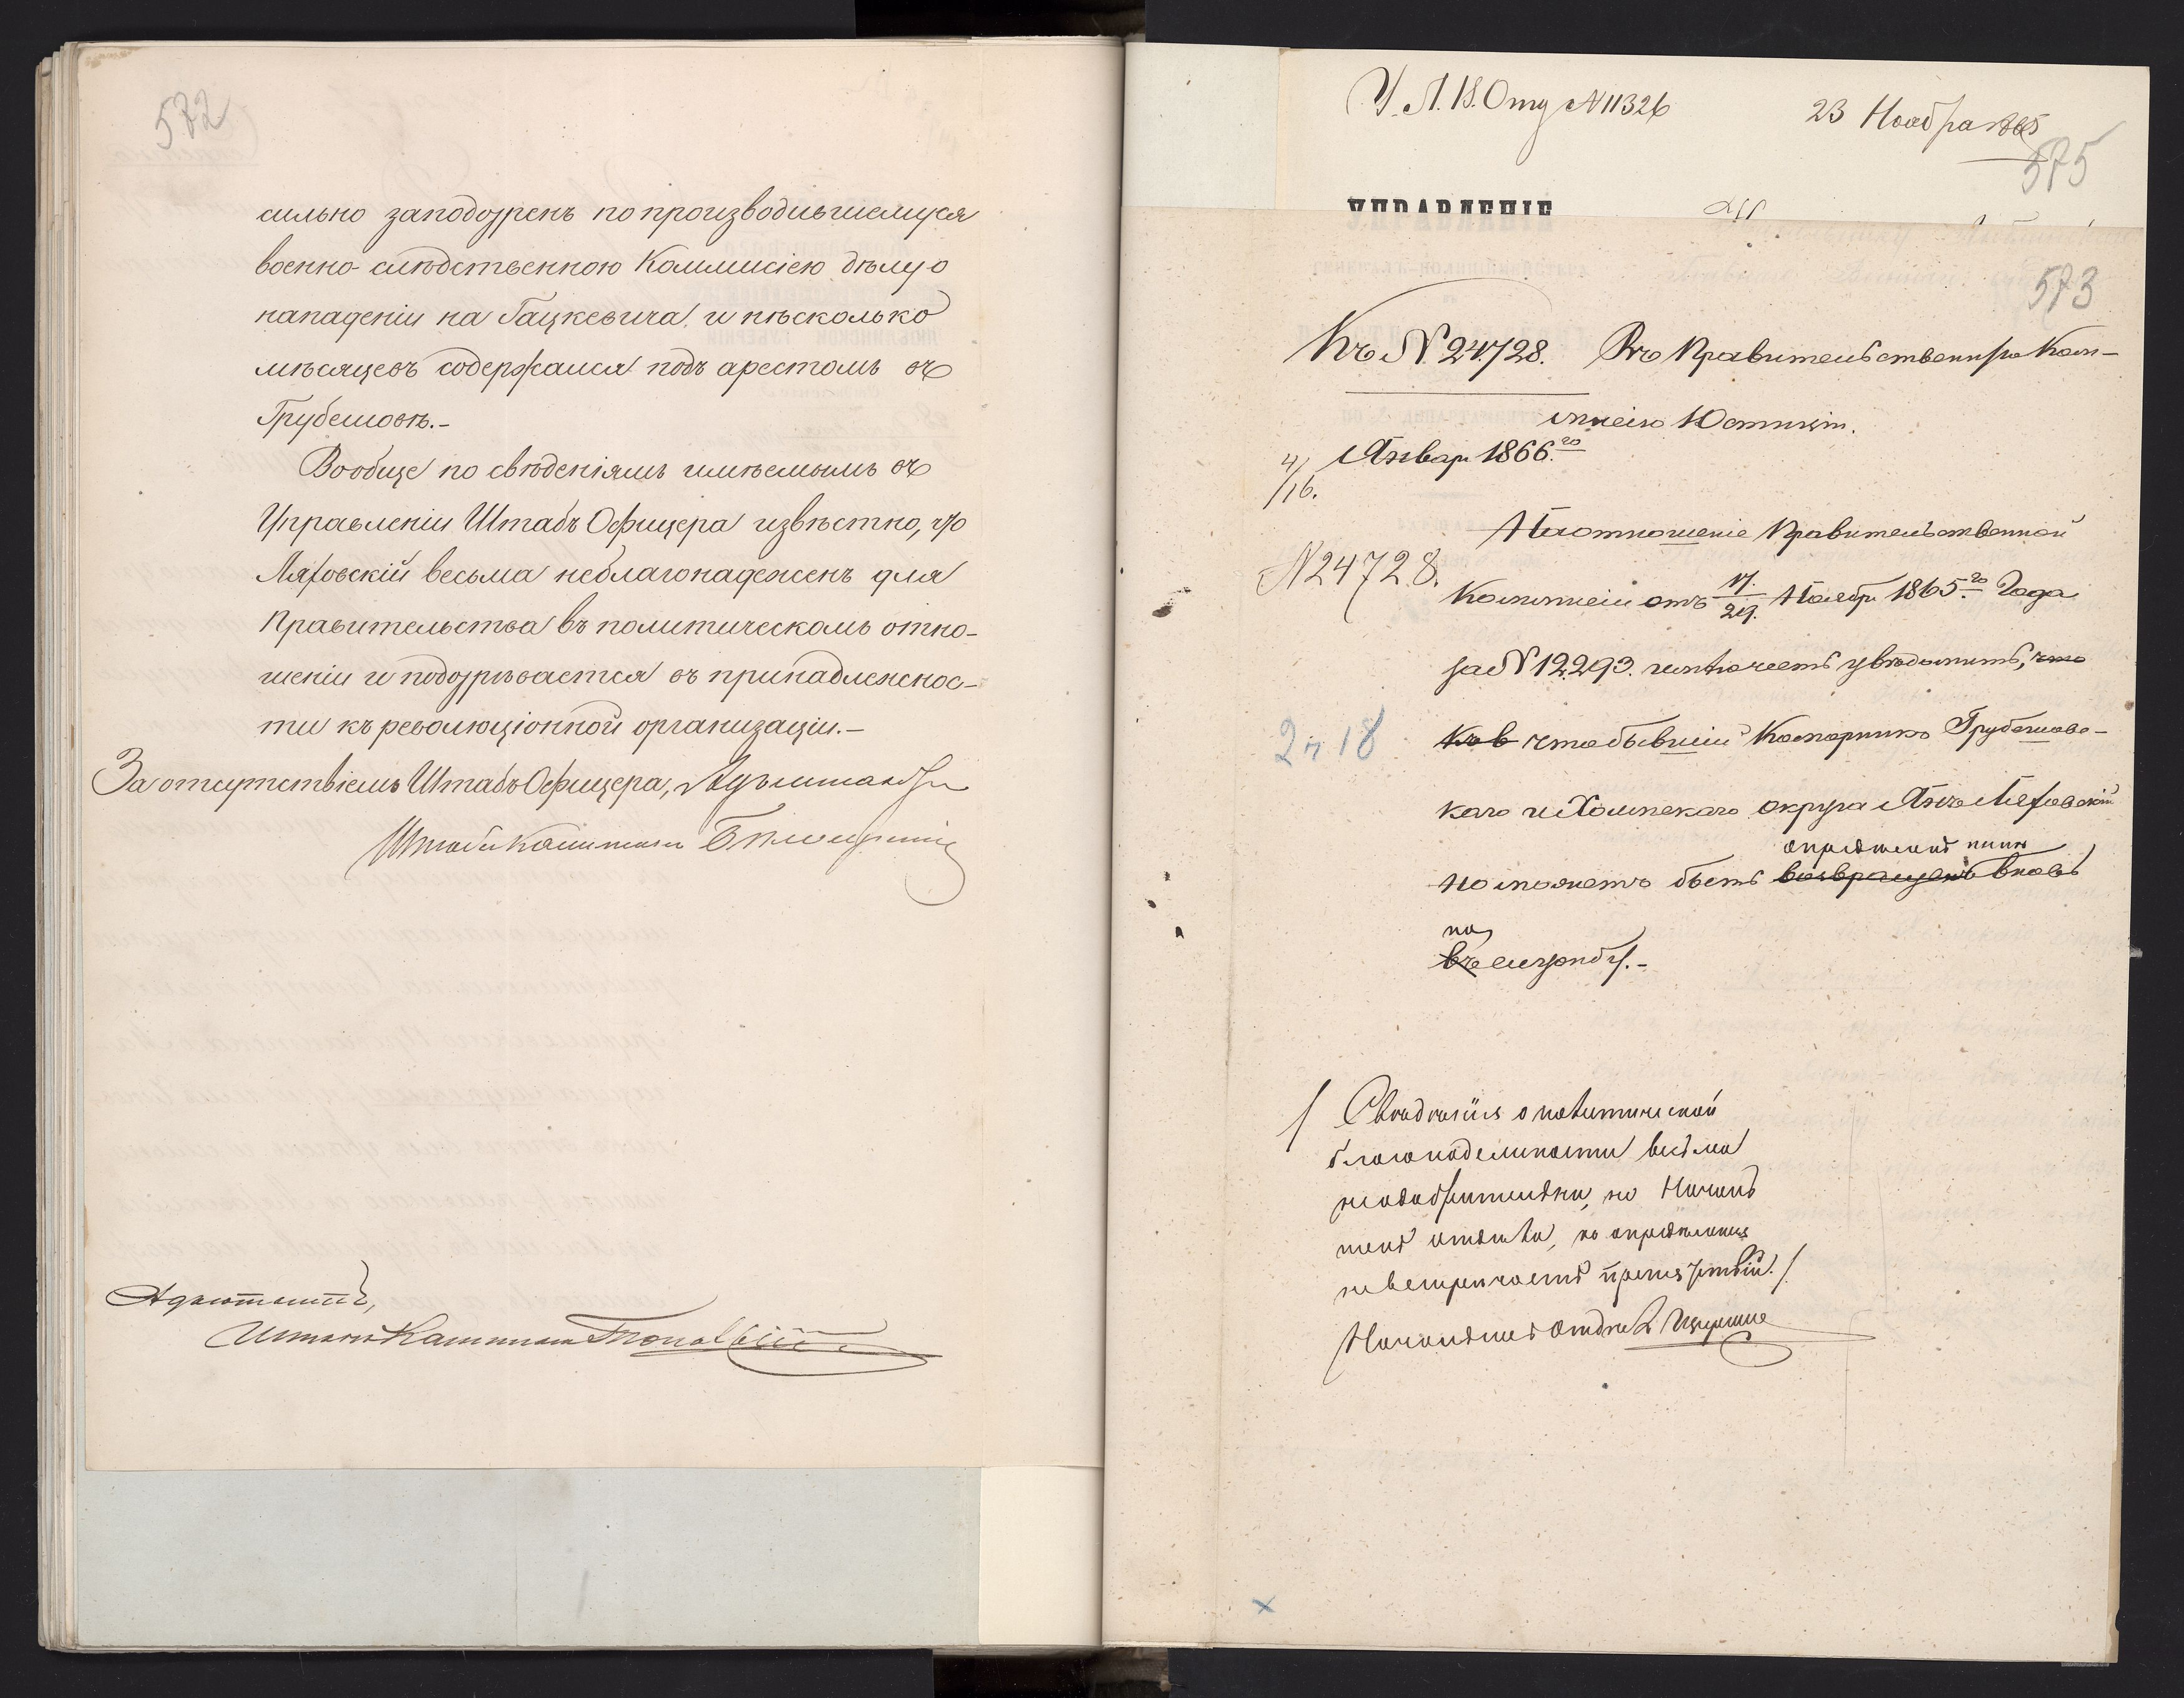 572
сильно заподозренъ по производившемуся
военно-слѣдственною Коммисіею дѣлу о
нападеніи на Гацкевича и нѣсколько
мѣсяцевъ содержался подъ арестомъ въ
Грубешовѣ.-
Вообще по свѣденіямъ имѣемымъ въ
Управленіи Штабъ Офицера извѣстно, что
Ляховскій весьма неблагонадеженъ для
Правительства въ политическомъ отно-
шеніи и подозрѣвается въ принадлежнос-
ти къ революціонной организаціи.-
За отсутствіемъ Штабъ Офицера, Адъютантъ
Штабсъ Капитанъ
Адъютантъ,
Штабсъ Капитанъ
У. Л. 18. Отд N 11326
23 Ноября 1865
575
УПРАВЛЕНІЕ
573
Къ N. 24728. Въ Правительственную Ком-
миcію Юстиціи.
4/16. Январ 1866.го
На отношеніе Правительственной
N 24728.
Коммисіи отъ 17/29. Ноябр 1865.го Года
за N 12293. имѣю честь увѣдомить, что
2 ч 18
Къ в что бывшій Коморникъ Грубешовс-
каго и Холмскаго округа Янъ Ляховскій
опредѣленъ нынѣ
но можетъ быть возвращенъ вновь
на
въ службу.-
/ Свѣденія о политической
благонадежности весьма
неодобрительны, но Началь
никъ отдѣла, къ опредѣленію
не встрѣчаетъ препятствій. /
Начальникъ Отдѣл